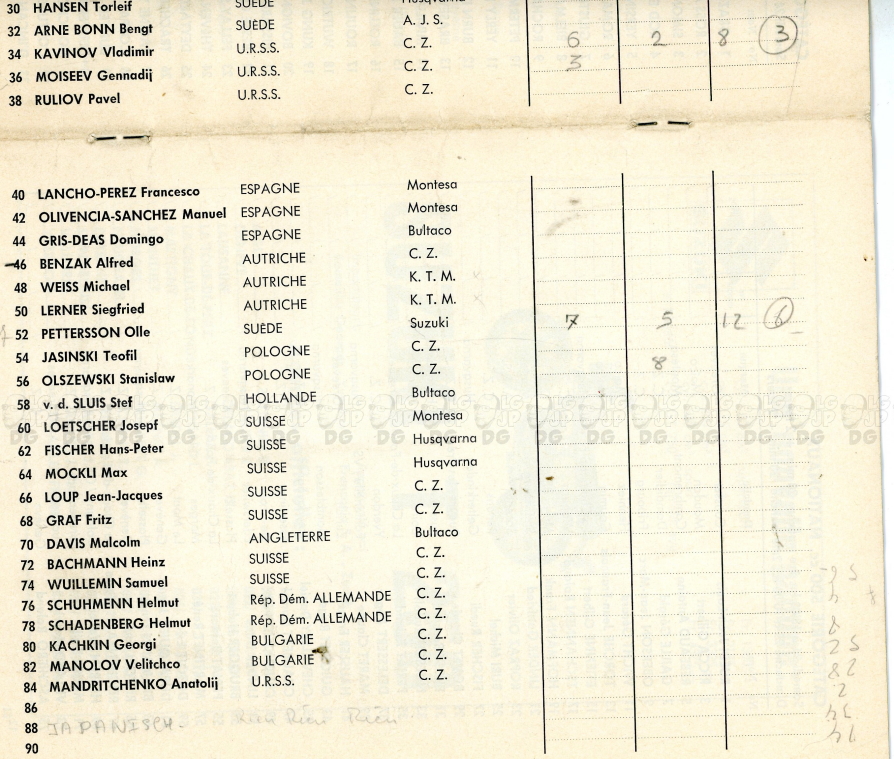 30 HANSEN Torleif SUÈDE Husqvarna
32 ARNE BONN Bengt SUÈDE A. J. S.
34 KAVINOV Vladimir U.R.S.S. C. Z. 6 2 8 3
36 MOISEEV Gennadij U.R.S.S. C. Z. 3
38 RULIOV Pavel U.R.S.S. C. Z.
40 LANCHO-PEREZ Francesco ESPAGNE Montesa
42 OLIVENCIA-SANCHEZ Manuel ESPAGNE Montesa
44 GRIS-DEAS Domingo ESPAGNE Bultaco
46 BENZAK Alfred AUTRICHE C. Z.
48 WEISS Michael AUTRICHE K. T. M. x
50 LERNER Siegfried AUTRICHE K. T. M. x
52 PETTERSSON Olle SUÈDE Suzuki 7 5 12 6
54 JASINSKI Teofil POLOGNE C. Z.
56 OLSZEWSKI Stanislaw POLOGNE C. Z. 8
58 v. d. SLUIS Stef HOLLANDE Bultaco
60 LOETSCHER Josepf SUISSE Montesa
62 FISCHER Hans-Peter SUISSE Husqvarna
64 MOCKLI Max SUISSE Husqvarna
66 LOUP Jean-Jacques SUISSE C. Z.
68 GRAF Fritz SUISSE C. Z.
70 DAVIS Malcolm ANGLETERRE Bultaco
72 BACHMANN Heinz SUISSE C. Z.
74 WUILLEMIN Samuel SUISSE C. Z.
76 SCHUHMENN Helmut Rép. Dém. ALLEMANDE C. Z.
78 SCHADENBERG Helmut Rép. Dém. ALLEMANDE C. Z.
80 KACHKIN Georgi BULGARIE C. Z.
82 MANOLOV Velitchco BULGARIE C. Z.
84 MANDRITCHENKO Anatolij U.R.S.S. C. Z.
86
88 JAPANISCH.
90